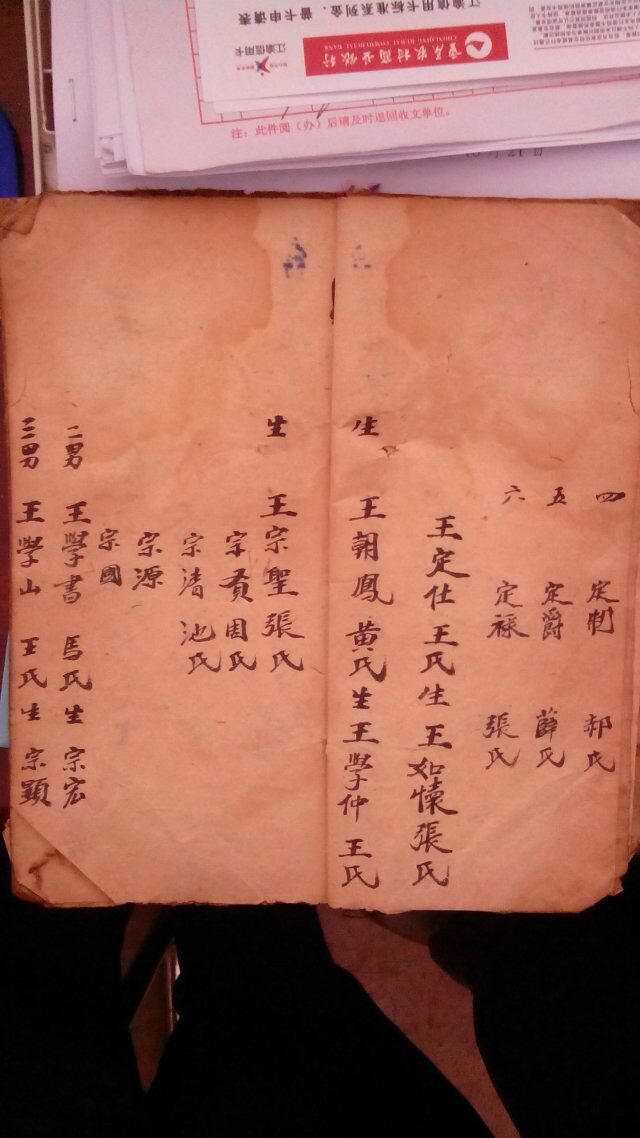 江渝信用卡标准系列金、普卡申请表
江渝信用卡
重庆农村商业银行
CHONGQING RURAL COMMERCIAL BANK
注：此件阅（办）后请及时退回收文单位。
四 定制 郝氏
五 定爵 薛氏
六 定祿 張氏
王定仕 王氏 生 王如懷 張氏
生 王朝鳳 黄氏 生 王學仲 王氏
生 王宗聖 張氏
宗貢 周氏
宗清 池氏
宗源
宗國
二男 王學書 馬氏 生 宗宏
三男 王學山 王氏 生 宗顯